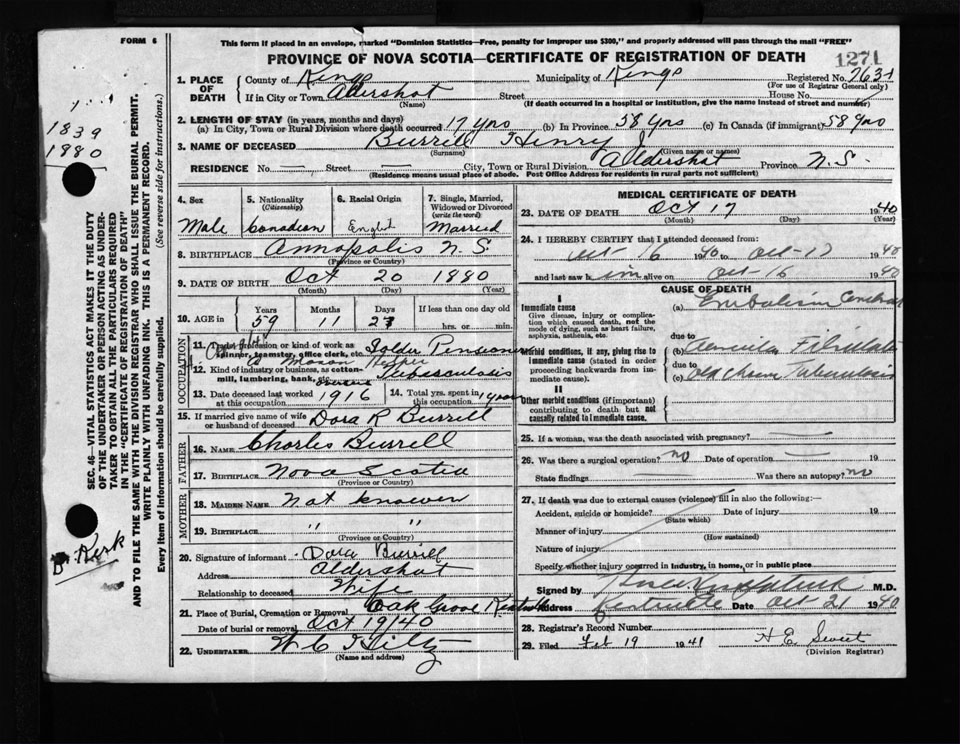 FORM 6
This form if placed in an envelope, marked "Dominion Statistics—Free, penalty for improper use $300," and properly addressed will pass through the mail "FREE"
PROVINCE OF NOVA SCOTIA—CERTIFICATE OF REGISTRATION OF DEATH
1271
1. PLACE OF DEATH
County of Kings Municipality of Kings Registered No.
(For use of Registrar General only)
If in City or Town Aldershot Street House No.
(Name) (If death occurred in a hospital or institution, give the name instead of street and number)
2. LENGTH OF STAY (in years, months and days)
(a) In City, Town or Rural Division where death occurred 17 yrs (b) In Province 58 yrs (c) In Canada (if immigrant) 58 yrs
3. NAME OF DECEASED Burrill Henry J
(Surname) (Given name or names)
RESIDENCE No. — Street — City, Town or Rural Division Aldershot Province N.S.
(Residence means usual place of abode. Post Office Address for residents in rural parts not sufficient)
4. Sex Male
5. Nationality (Citizenship) Canadian
6. Racial Origin
7. Single, Married, Widowed or Divorced (write the word) Married
8. BIRTHPLACE Annapolis N.S.
(Province or Country)
9. DATE OF BIRTH Oct 20 1880
(Month) (Day) (Year)
10. AGE in Years Months Days If less than one day old
59 11 27 hrs. or min.
OCCUPATION
11. Trade, profession or kind of work as spinner, teamster, office clerk, etc.
12. Kind of industry or business, as cotton-mill, lumbering, bank, Tuberculosis
13. Date deceased last worked at this occupation 1916
14. Total yrs. spent in this occupation
15. If married give name of wife or husband of deceased Dora R Burrell
FATHER
16. NAME Charles Burrell
17. BIRTHPLACE Nova Scotia
(Province or Country)
MOTHER
18. MAIDEN NAME Not known
19. BIRTHPLACE " "
(Province or Country)
20. Signature of informant Dora Burrill
Address Aldershot
Relationship to deceased Wife
21. Place of Burial, Cremation or Removal Oak Grove
Date of burial or removal Oct 19 1940
22. UNDERTAKER W C Hiltz
(Name and address)
MEDICAL CERTIFICATE OF DEATH
23. DATE OF DEATH Oct 17 1940
(Month) (Day) (Year)
24. I HEREBY CERTIFY that I attended deceased from:
Oct 16 1940 to Oct 17 1940
and last saw him alive on Oct 16 1940
CAUSE OF DEATH
I
Immediate cause
Give disease, injury or complication which caused death, not the mode of dying, such as heart failure, asphyxia, asthenia, etc.
(a) Embolism Cerebral
due to
Morbid conditions, if any, giving rise to immediate cause (stated in order proceeding backwards from immediate cause).
(b) Auricular Fibrillation
due to
(c) Old Chronic Tuberculosis
II
Other morbid conditions (if important) contributing to death but not causally related to immediate cause.
25. If a woman, was the death associated with pregnancy? —
26. Was there a surgical operation? no Date of operation — 19
State findings Was there an autopsy? no
27. If death was due to external causes (violence) fill in also the following:—
Accident, suicide or homicide? Date of injury 19
(State which)
Manner of injury
(How sustained)
Nature of injury
Specify whether injury occurred in industry, in home, or in public place
Signed by M.D.
Address Kentville Date Oct 21 1940
28. Registrar's Record Number
29. Filed Feb 19 1941 H E Sweet
(Division Registrar)
SEC. 46—VITAL STATISTICS ACT MAKES IT THE DUTY
OF THE UNDERTAKER OR PERSON ACTING AS UNDER-
TAKER TO OBTAIN ALL THE PARTICULARS REQUIRED
IN THE "CERTIFICATE OF REGISTRATION OF DEATH"
AND TO FILE THE SAME WITH THE DIVISION REGISTRAR WHO SHALL ISSUE THE BURIAL PERMIT.
WRITE PLAINLY WITH UNFADING INK. THIS IS A PERMANENT RECORD.
Every item of information should be carefully supplied. (See reverse side for instructions.)
1839
1880